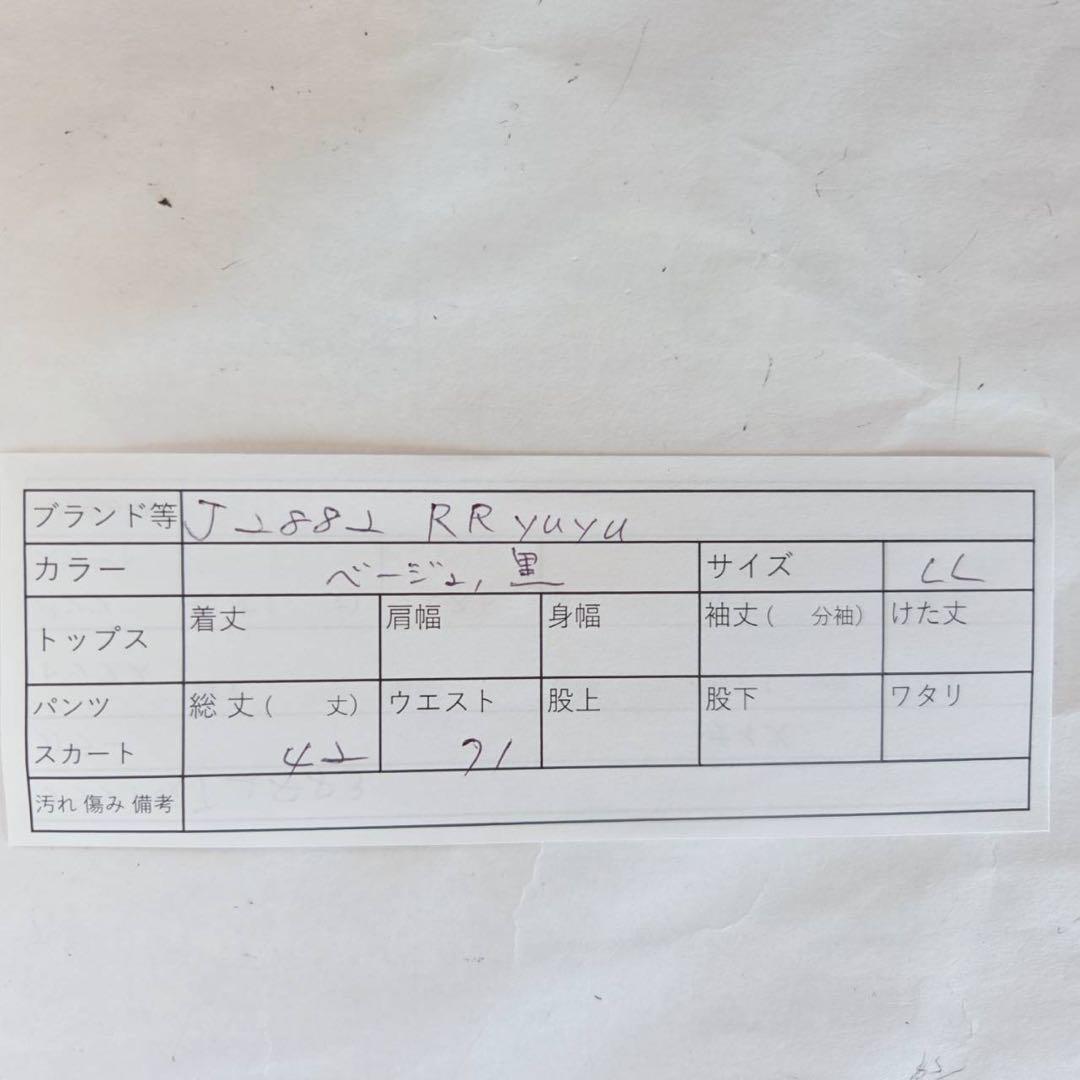 ブランド等 J2882 RRyuyu
カラー ベージュ, 黒 サイズ LL
トップス 着丈 肩幅 身幅 袖丈( 分袖) けた丈
パンツ 総丈( 丈) ウエスト 股上 股下 ワタリ
スカート 42 71
汚れ 傷み 備考